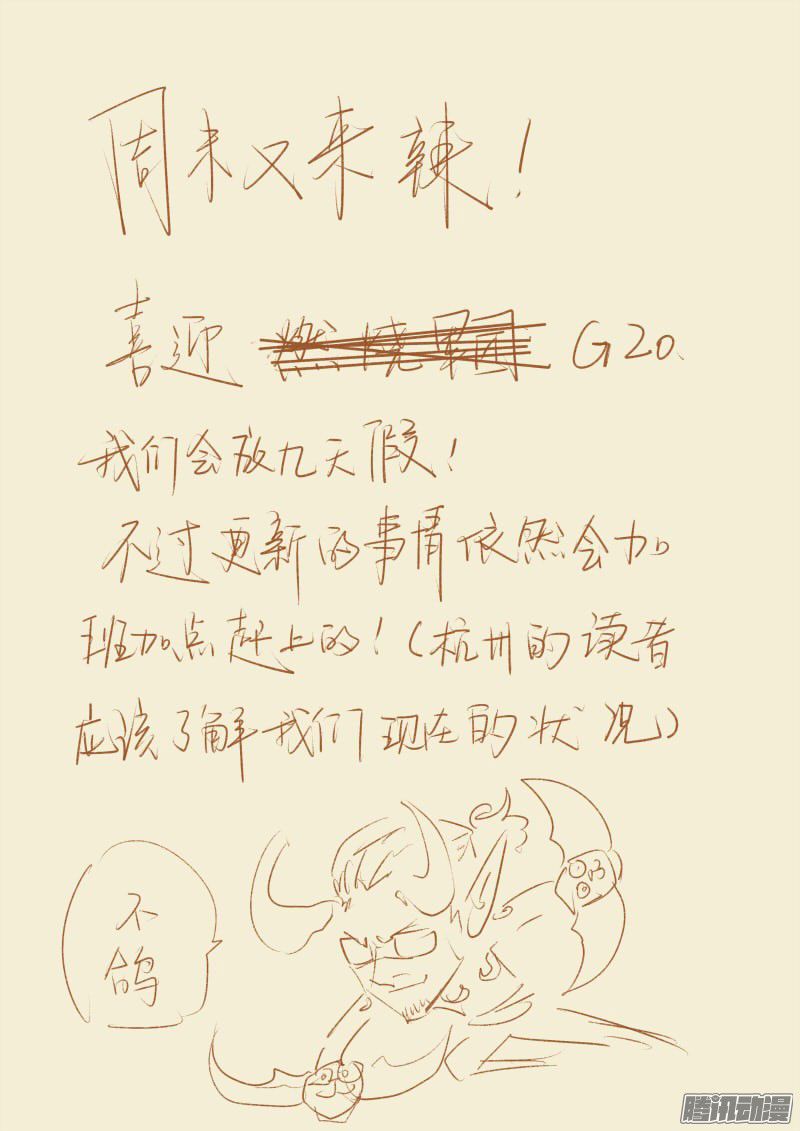 周末又来辣!
喜迎 燃烧军团 G20、
我们会放九天假!
不过更新的事情依然会加
班加点赶上的!(杭州的读者
应该了解我们现在的状况)
不
鸽
腾讯动漫